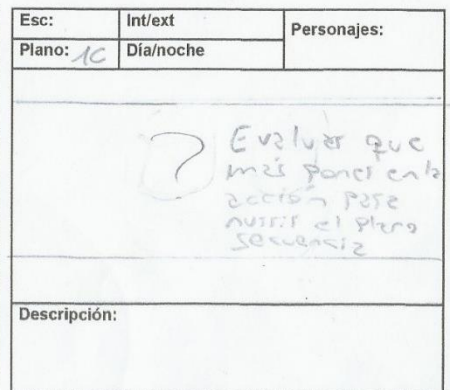 Esc:
Int/ext
Personajes:
Plano: 1C
Día/noche
?
Evaluar que
más poner en la
acción para
nutrir el plano
secuencia
Descripción: